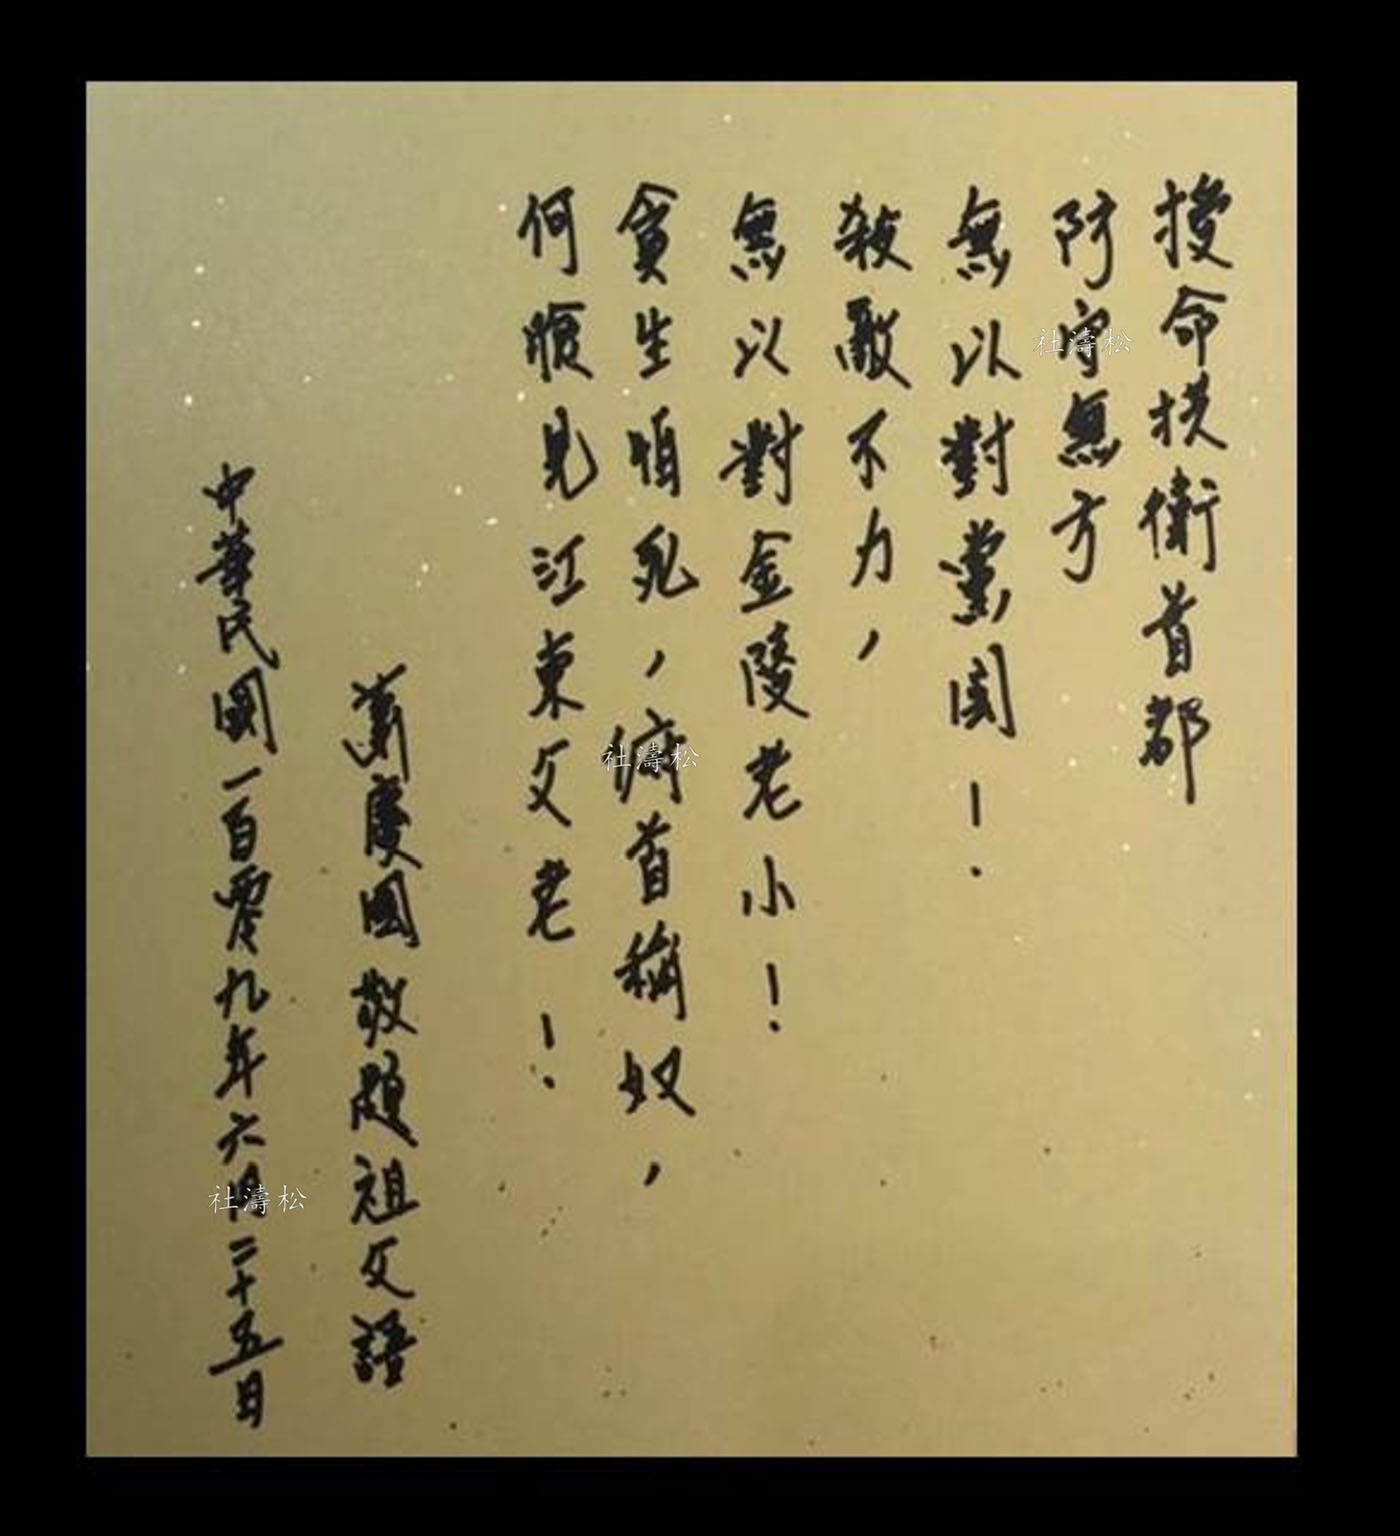 授命拱衛首都
防守無方
無以對黨國！
殺敵不力，
無以對金陵老小！
貪生怕死，俯首稱奴，
何顏見江東父老！
蕭慶國敬題祖父語
中華民國一百零九年六月二十五日
社濤松
社濤松
社濤松